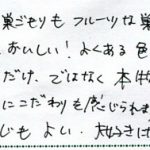 巣ごもりもフルーツな巣
おいしい！よくある色
だけ、ではなく本物
にこだわりも感じられま
じもよい。大好きに